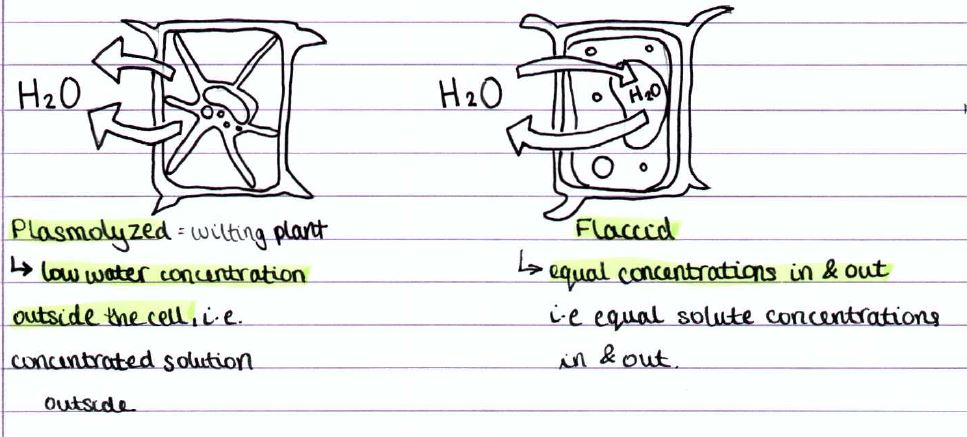 H₂O
H₂O
H₂O
Plasmolyzed = wilting plant
↳ low water concentration
outside the cell, i.e.
concentrated solution
outside
Flaccid
↳ equal concentrations in & out
i.e equal solute concentrations
in & out.